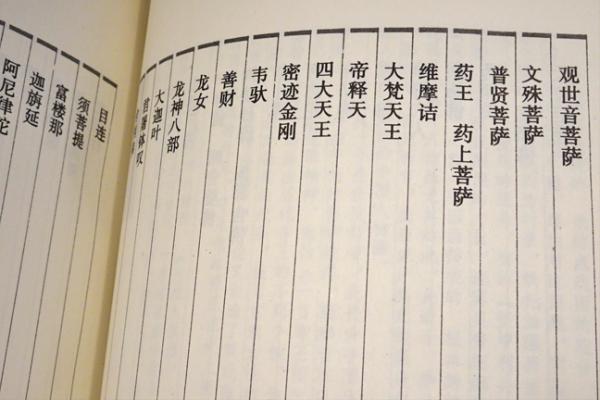 观世音菩萨
文殊菩萨
普贤菩萨
药王　药上菩萨
维摩诘
大梵天王
帝释天
四大天王
密迹金刚
韦驮
善财
龙女
龙神八部
大迦叶
目连
须菩提
富楼那
迦旃延
阿尼律陀